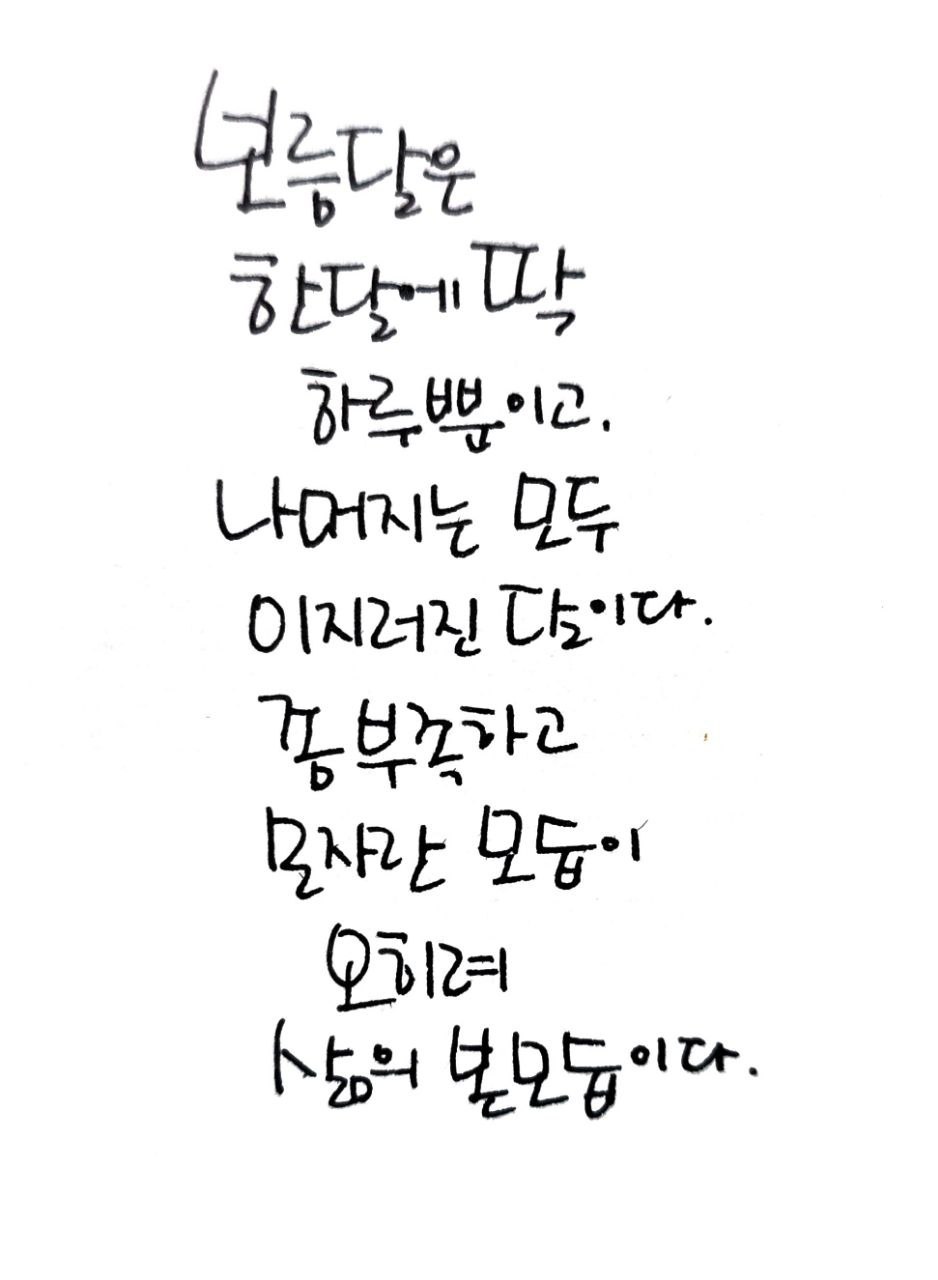 보름달은
한달에 딱
하루뿐이고.
나머지는 모두
이지러진 달이다.
좀 부족하고
모자란 모듭이
오히려
삶의 본모듭이다.